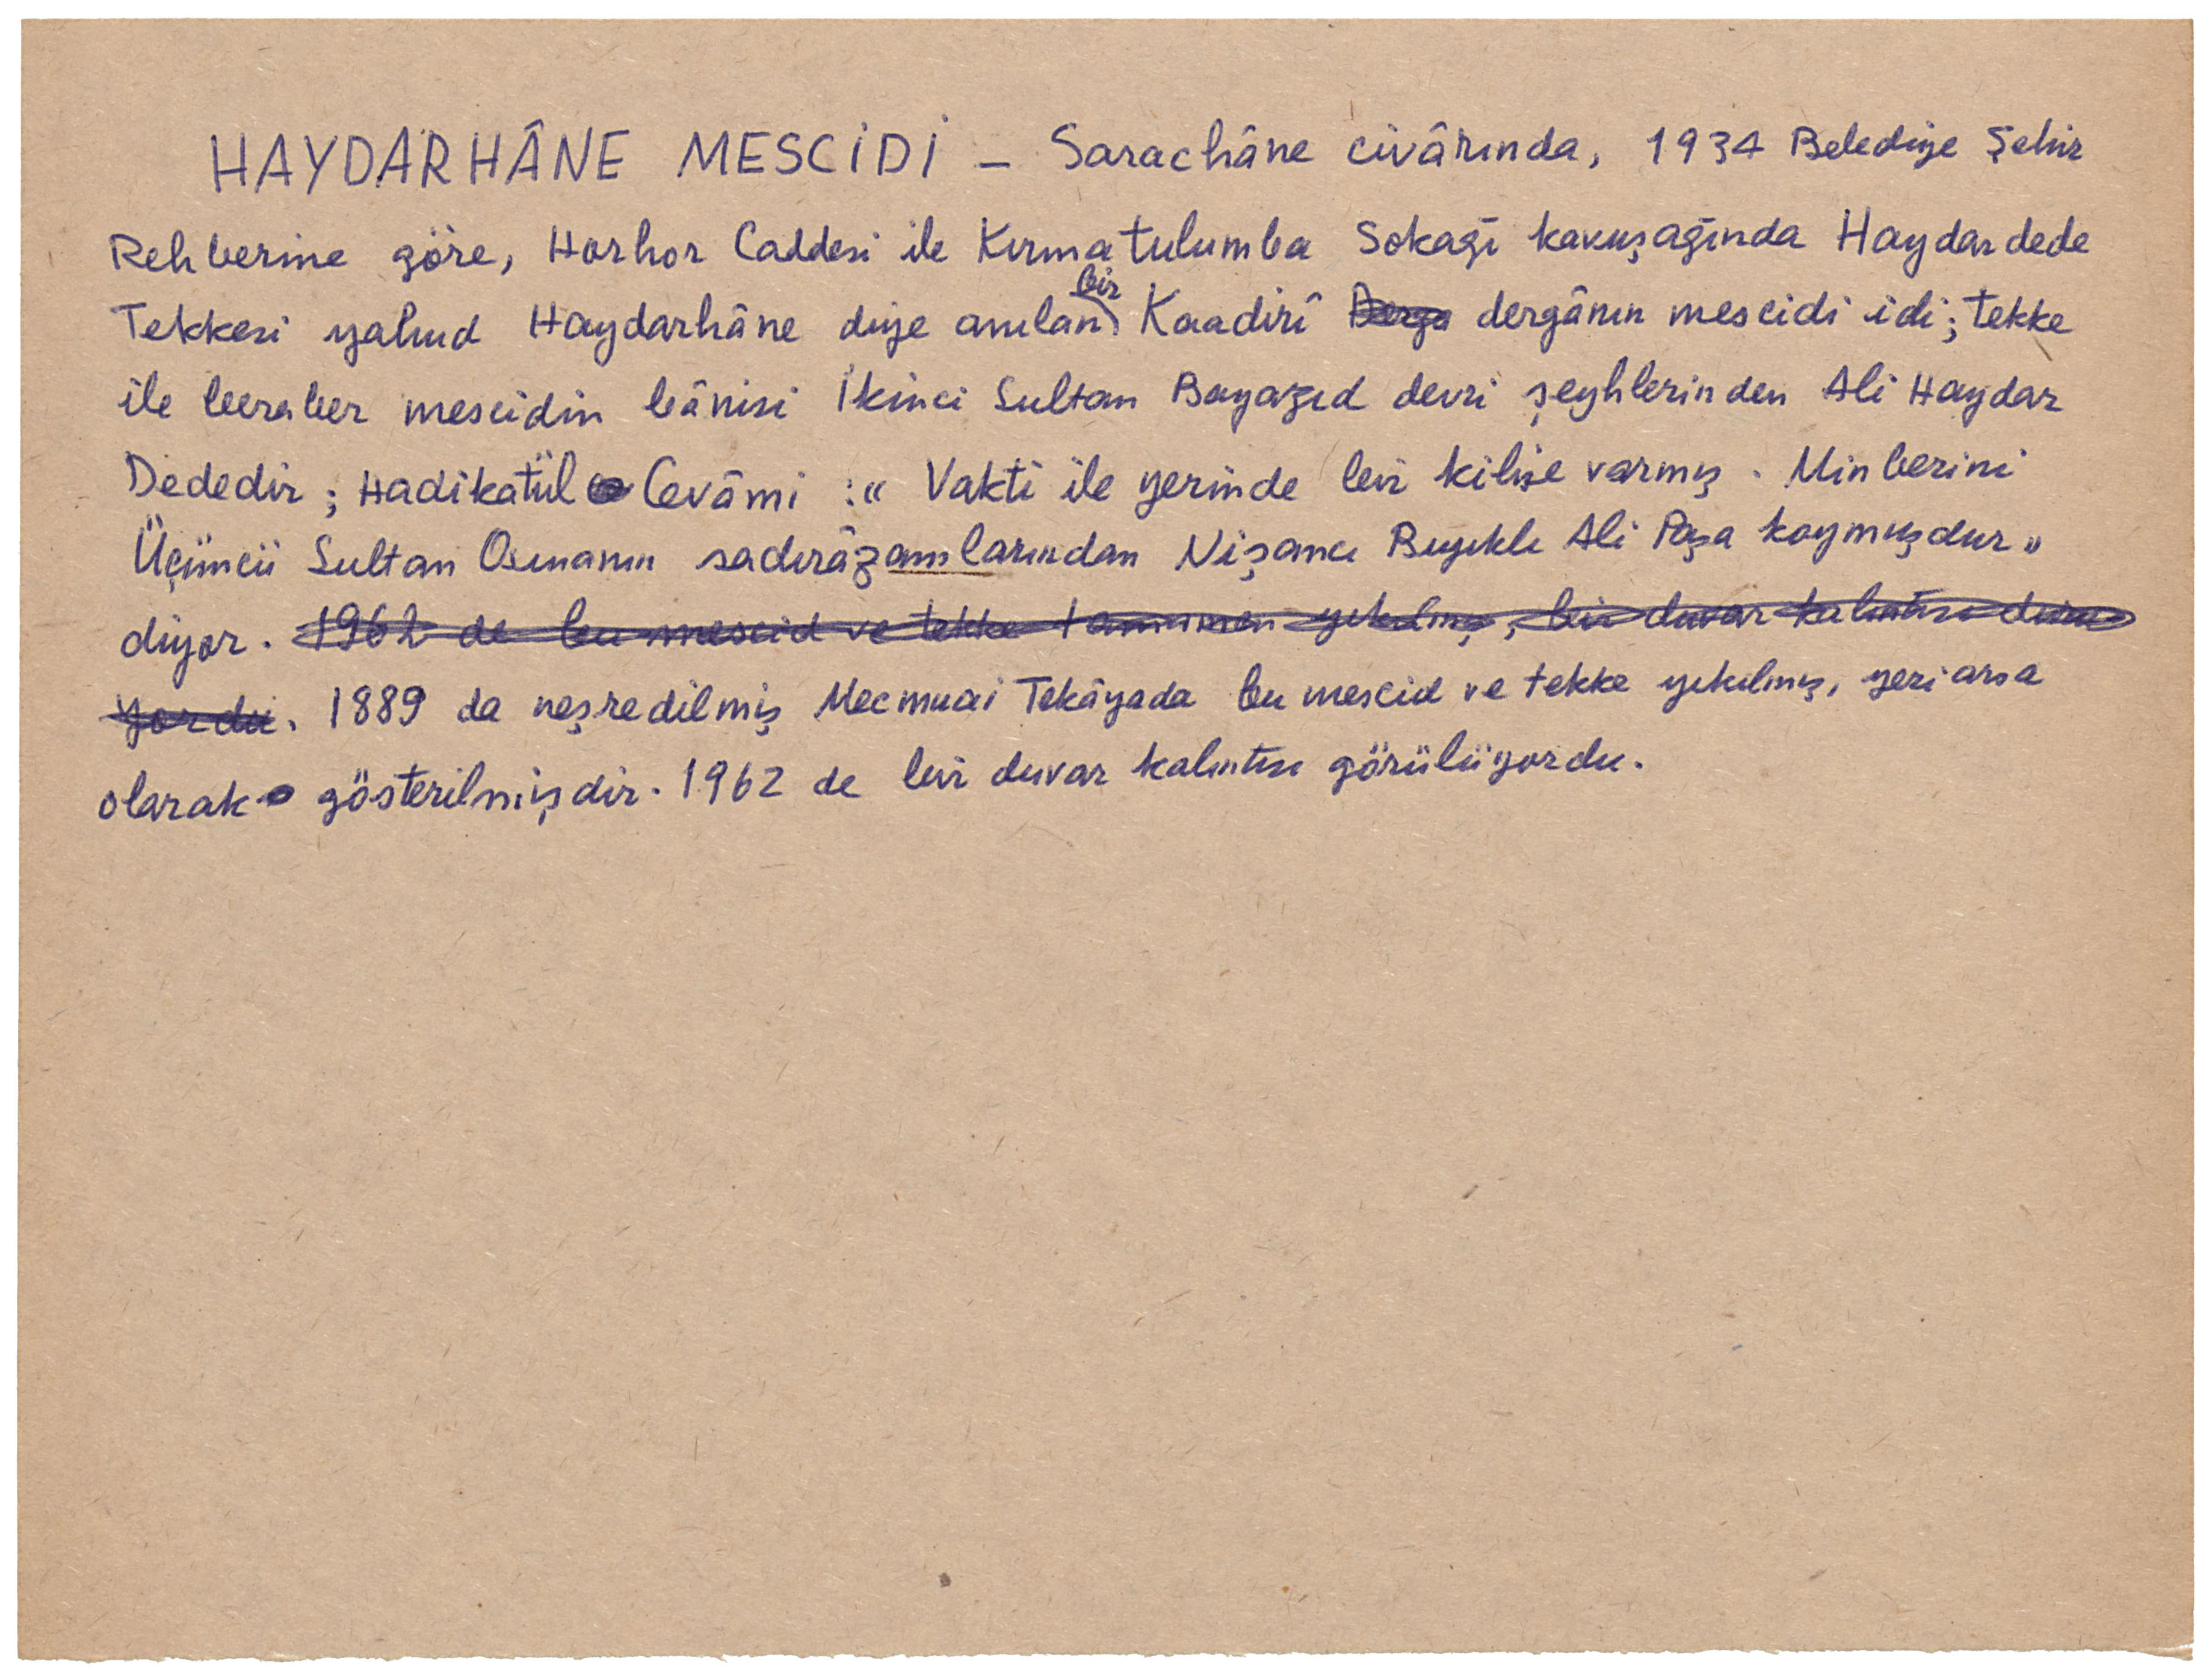 HAYDARHÂNE MESCİDİ – Sarachâne civârında, 1934 Belediye Şehir
Rehberine göre, Horhor Caddesi ile Kırmatulumba Sokağı kavuşağında Haydardede
Tekkesi yahud Haydarhâne diye anılan bir Kaadirî Derga dergânın mescidi idi; tekke
ile beraber mescidin bânisi İkinci Sultan Bayazıd devri şeyhlerinden Ali Haydar
Dededir; Hadikatül Cevâmi :« Vakti ile yerinde bir kilise varmış. Minberini
Üçüncü Sultan Osmanın sadırâzamlarından Nişancı Bıyıklı Ali Paşa koymuşdur»
diyor. 1962 de bu mescid ve tekke tamamen yıkılmış, bir duvar kalıntısı duru
yordu. 1889 da neşredilmiş Mecmuai Tekâyada bu mescid ve tekke yıkılmış, yeri arsa
olarak gösterilmişdir. 1962 de bir duvar kalıntısı görülüyordu.